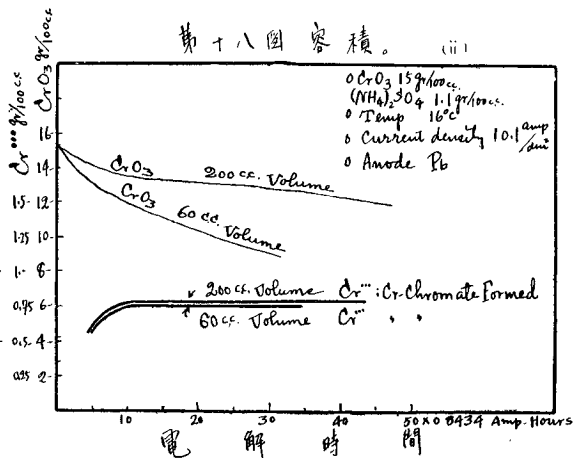 第十八圖 容積。 (ii)
CrO3 gr/100cc
Cr''' gr/100cc
o CrO3 15 gr/100cc.
(NH4)2SO4 1.1 gr/100cc.
o Temp 16°C
o Current density 10.1 amp/dm²
o Anode Pb
16
14
1.5 12
1.25 10
1. 8
0.75 6
0.5 4
0.25 2
CrO3 200 c.c. Volume
CrO3 60 c.c. Volume
200 c.c. Volume Cr''' : Cr-Chromate Formed
60 c.c. Volume Cr''' " "
10 20 30 40 50 x 0.8434 Amp. Hours
電解時間